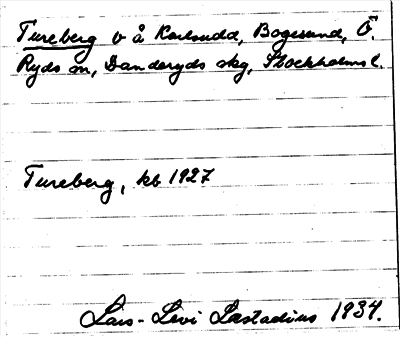 Tureberg v å Karlsudd, Bogesund, Ö.
Ryds sn, Danderyds skg, Stockholms l.
Tureberg, kb 1927
Lars-Levi Læstadius 1934.